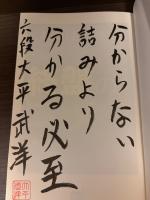 分からない
詰みより
分かる必至
六段大平武洋